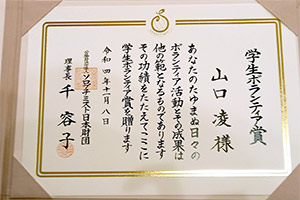 学生ボランティア賞
山口凌様
あなたのたゆまぬ日々の
ボランティア活動とその成果は
他の範となるものであります
その功績をたたえてここに
学生ボランティア賞を贈ります
令和四年十一月八日
ソロプチミスト日本財団
理事長 千容子